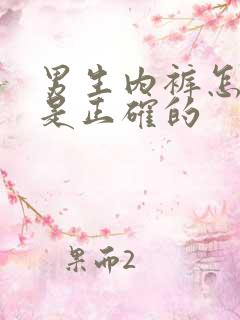 男生内裤怎
是正确的
果而2